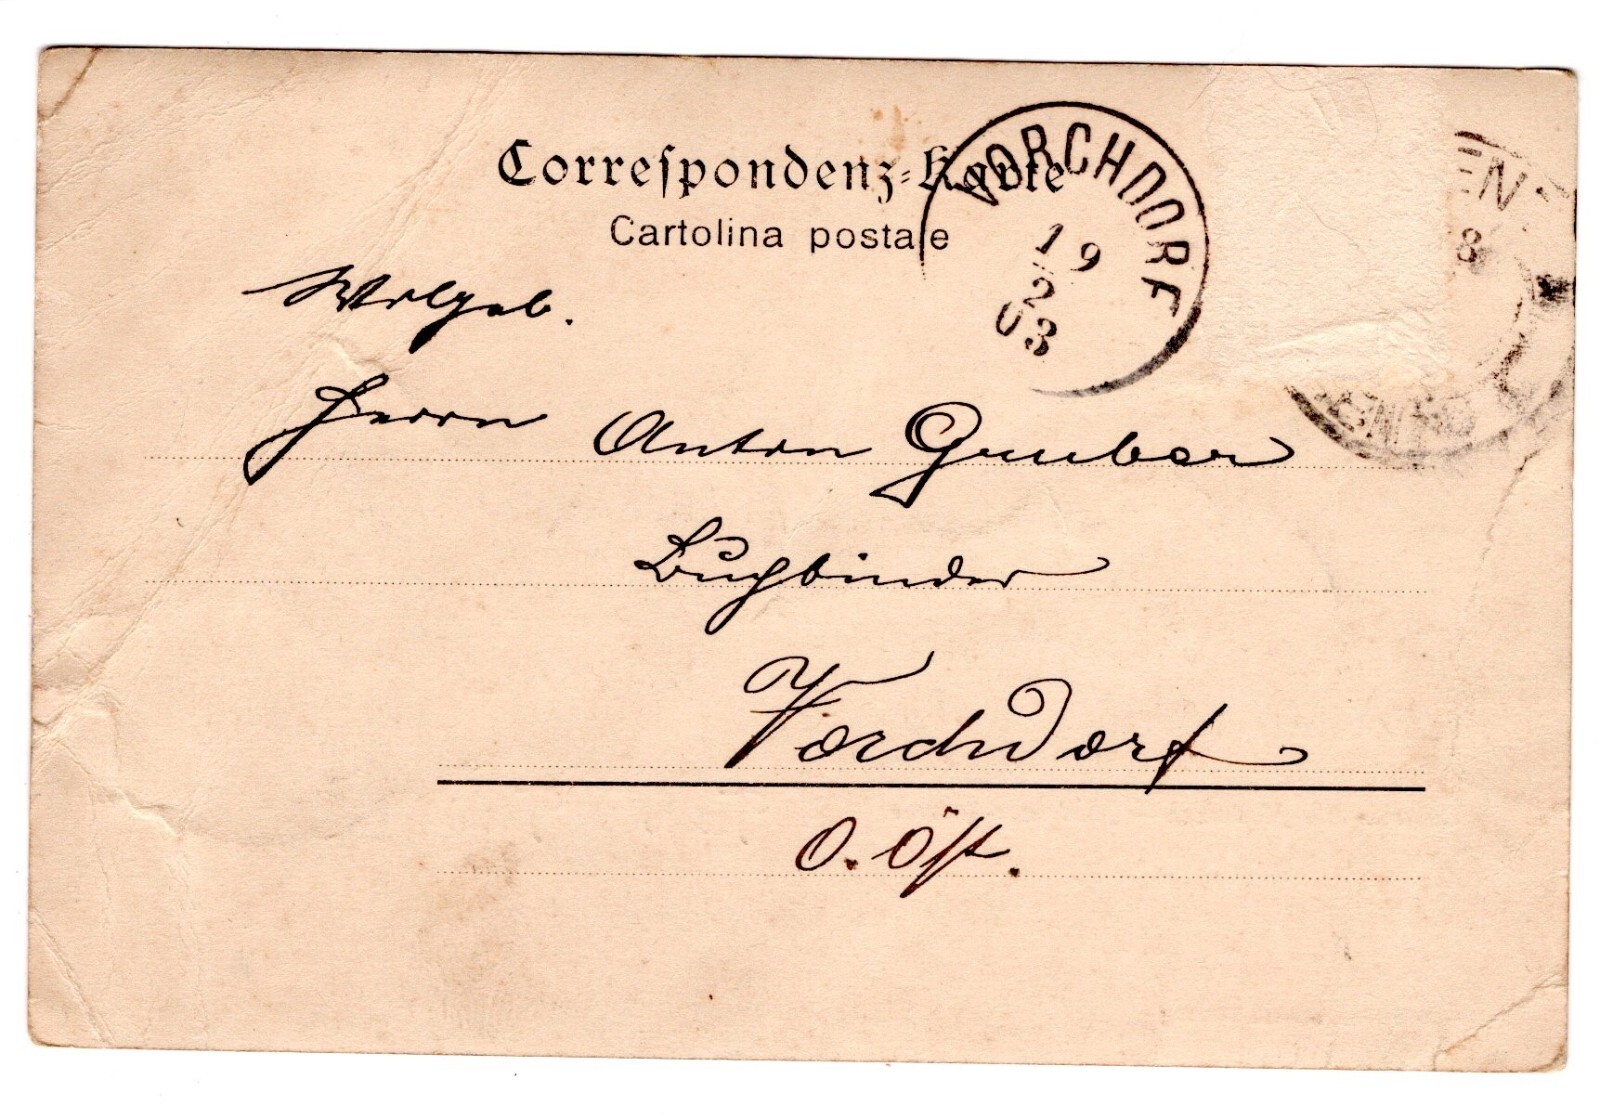 Correſpondenz-Karte
Cartolina postale
VORCHDORF
19
2
03
EN
8
Wolgeb.
Herrn Anton Gruber
Buchbinder
Vorchdorf
O. Öst.